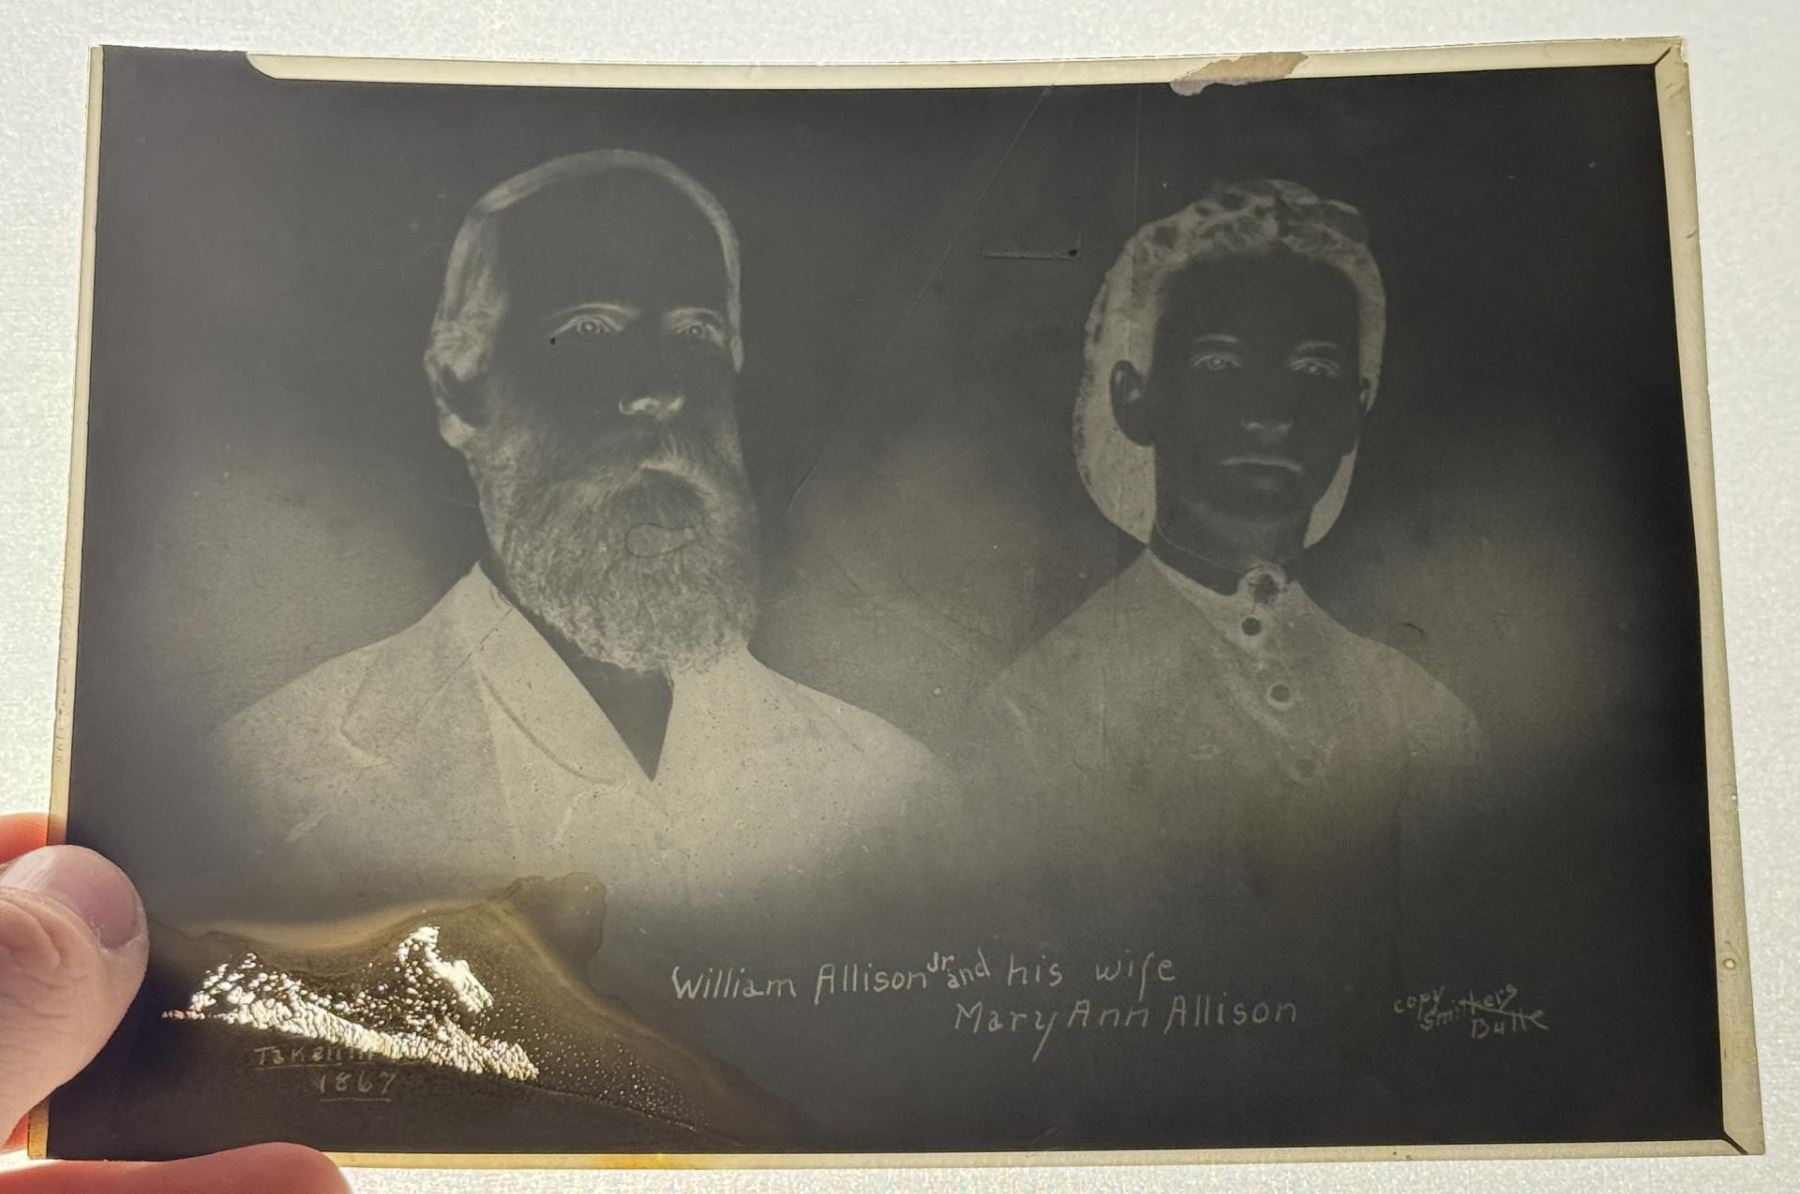 William Allison Jr and his wife
Mary Ann Allison
copy
Smithers
Butte
Taken in
1867